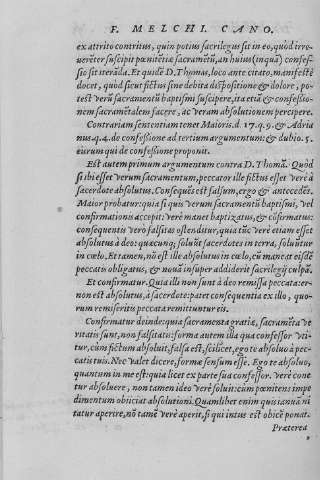 F. MELCHI. CANO.
ex attrito contritus, quin potius sacrilegus sit in eo, quòd irre-
uerēter suscipit pœnitētiæ sacramētū, an huius (inquā) confes-
sio sit iterāda. Et quidē D. Thomas, loco ante citato, manifestè
docet, quòd sicut fictus sine debita dispositione & dolore, po-
test verū sacramentū baptismi suscipere, ita etiā & confessio-
nem sacramētalem facere, ac veram absolutionem percipere.
Contrariam sententiam tenet Maioris. d. 17. q. 9. & Adria
nus. q. 4. de confessione ad tertium argumentum: & dubio. 5.
eorum qui de confessione proponit.
Est autem primum argumentum contra D. Thomā. Quòd
si ibi esset verum sacramentum, peccator ille fictus esset verè à
sacerdote absolutus. Consequēs est falsum, ergo & antecedēs.
Maior probatur: quia si quis verum sacramentū baptismi, vel
confirmationis accepit: verè manet baptizatus, & cōfirmatus:
consequentis verò falsitas ostenditur, quia tūc verè etiam esset
absolutus à deo: quæcunq; soluūt sacerdotes in terra, soluūtur
in cœlo. Et tamen, nō est ille absolutus in cœlo, cū maneat eisdē
peccatis obligatus, & nouā insuper addiderit sacrilegij culpā.
Et confirmatur. Quia illi non sunt à deo remissa peccata: er-
non est absolutus, à sacerdote: patet consequentia ex illo, quo-
rum remiseritis peccata remittuntur eis.
Confirmatur deinde: quia sacramenta gratiæ, sacramēta ve
ritatis sunt, non falsitatis: forma autem illa qua confessor vti-
tur, cùm fictum absoluit, falsa est, scilicet, ego te absoluo à pec-
catis tuis. Nec valet dicere, formæ sensum esse. Ego te absoluo,
quantum in me est: quia licet ex parte sua confessor. Verè cone
tur absoluere, non tamen ideo verè soluit: cùm pœnitens impe
dimentum obiiciat absolutioni. Quamlibet enim quis ianuā ni
tatur aperire, nō tamē verè aperit, si qui intus est obicē ponat.
Præterea